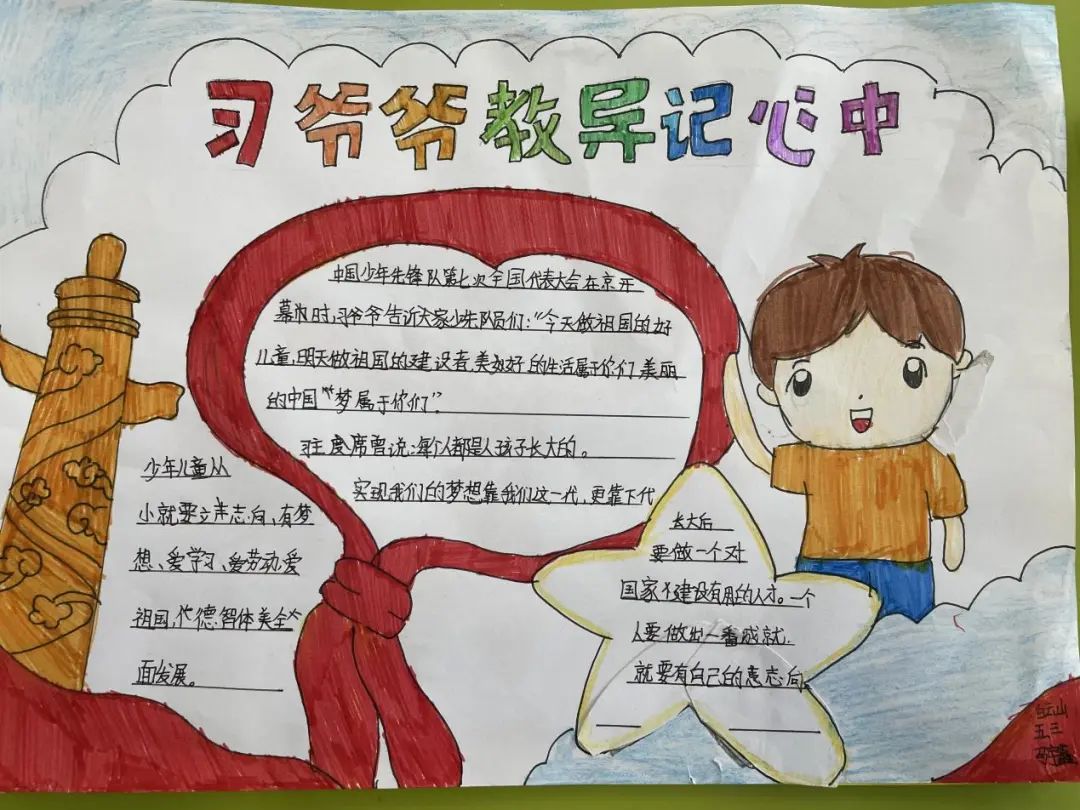 习爷爷教导记心中
中国少年先锋队第七次全国代表大会在京开
幕时,习爷爷告诉大家少先队员们:“今天做祖国的好
儿童,明天做祖国的建设者,美好的生活属于你们,美丽
的中国梦属于你们”.
习主席曾说:每个人都是从孩子长大的。
实现我们的梦想靠我们这一代,更靠下代
少年儿童从
小就要立志向,有梦
想、爱学习、爱劳动、爱
祖国,德智体美全
面发展。
长大后
要做一个对
国家建设有用的人才。一个
人要做出一番成就,
就要有自己的意志向
白云山
五三